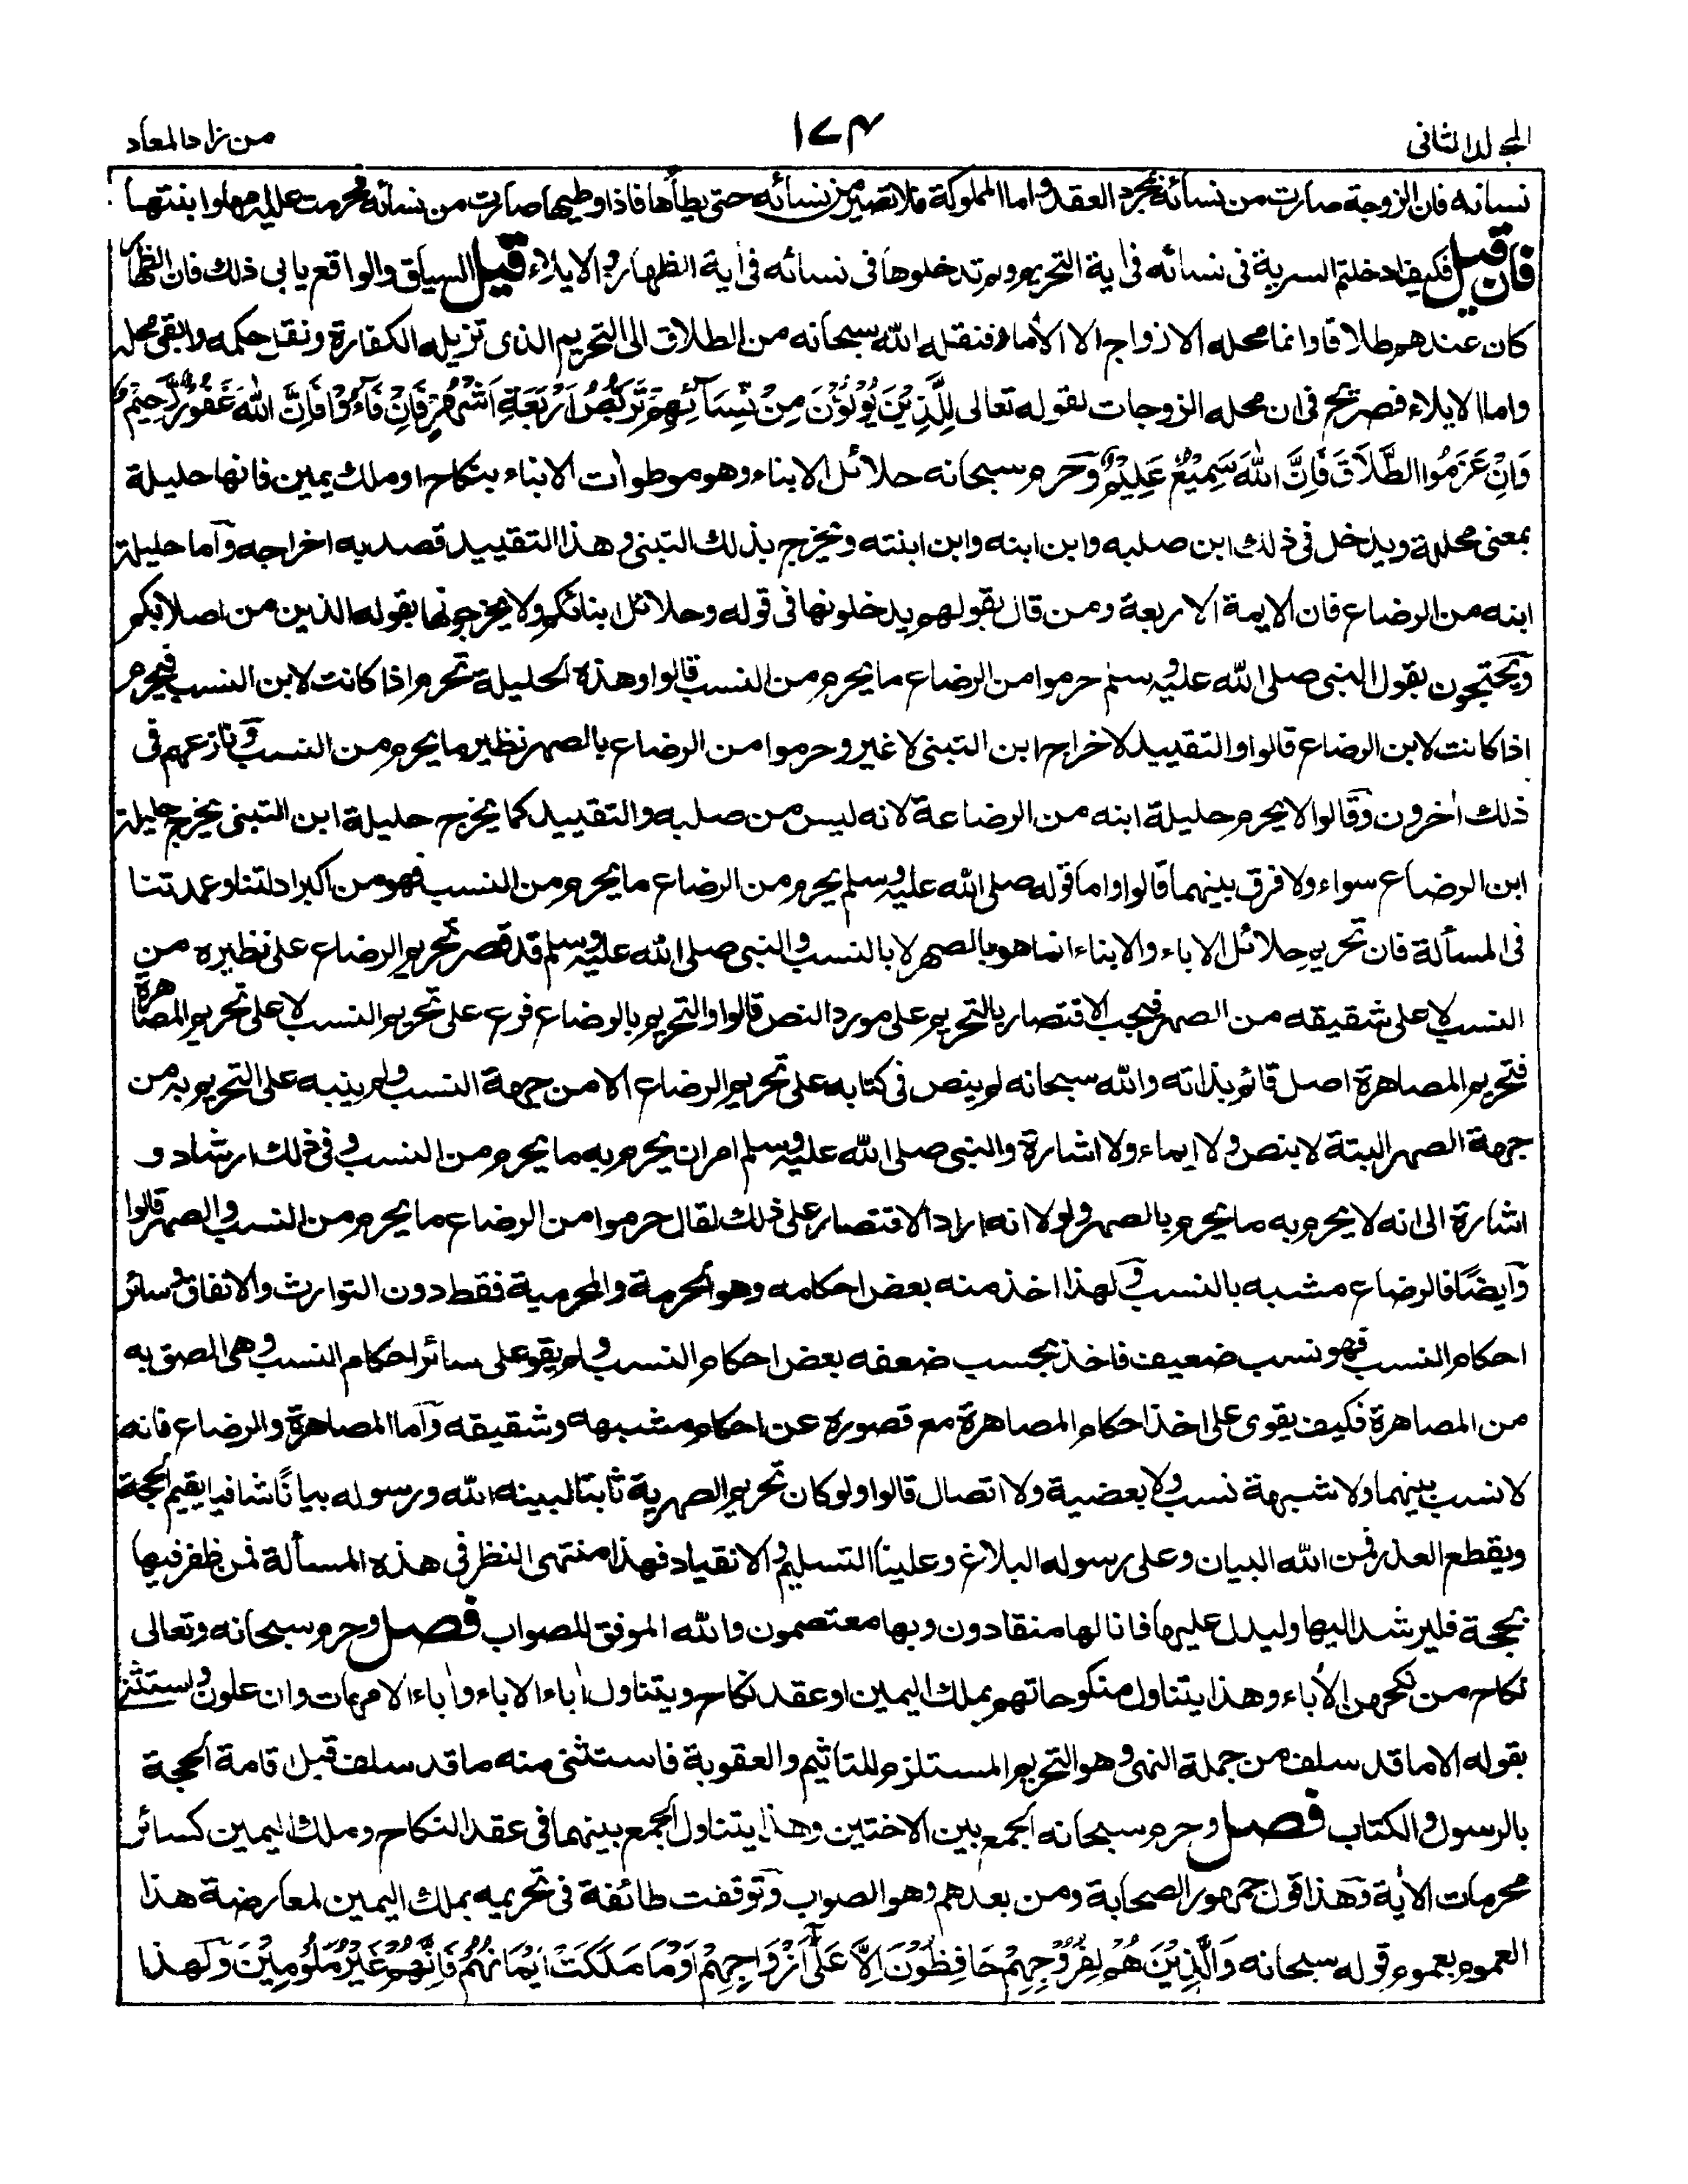 المجلد الثانى
١٧٤
من زاد المعاد
نسائه فان الزوجة صارت من نسائه بمجرد العقد واما المملوكة فلا تصير من نسائه حتى يطأها فاذا وطيها صارت من نسائه فحرمت عليه امها وابنتها
فان قيل فكيف ادخلتم السرية فى نسائه فى أية التحريم ولم تدخلوها فى نسائه فى أية الظهار والايلاء قيل السياق والواقع يابى ذلك فان الظهار
كان عندهم طلاقا وانما محله الازواج لا الأماء فنقله الله سبحانه من الطلاق الى التحريم الذى تزيله الكفارة ونقل حكمه وابقى محله
واما الايلاء فصريح فى ان محله الزوجات لقوله تعالى لِلَّذِيْنَ يُؤْلُوْنَ مِنْ نِّسَآئِهِمْ تَرَبُّصُ اَرْبَعَةِ اَشْهُرٍ فَاِنْ فَآءُوْا فَاِنَّ اللهَ غَفُوْرٌ رَّحِيْمٌ
وَاِنْ عَزَمُوا الطَّلَاقَ فَاِنَّ اللهَ سَمِيْعٌ عَلِيْمٌ وَحرم سبحانه حلائل الابناء وهو موطوأت الابناء بنكاح او ملك يمين فانها حليلة
بمعنى محللة ويدخل فى ذلك ابن صلبه وابن ابنه وابن ابنته ويخرج بذلك التبنى وهذا التقييد قصد به اخراجه وآما حليلة
ابنه من الرضاع فان الايمة الاربعة ومن قال بقولهم يدخلونها فى قوله وحلائل ابنائكم ولا يخرجونها بقوله الذين من اصلابكم
ويحتجون بقول النبى صلى الله عليه وسلم حرموا من الرضاع ما يحرم من النسب قالوا وهذه الحليلة تحرم اذا كانت لابن النسب فيحرم
اذا كانت لابن الرضاع قالوا والتقييد لاخراج ابن التبنى لا غير وحرموا من الرضاع بالصهر نظير ما يحرم من النسب ونازعهم فى
ذلك أخرون وقالوا لا يحرم حليلة ابنه من الرضاعة لانه ليس من صلبه والتقييد كما يخرج حليلة ابن التبنى يخرج حليلة
ابن الرضاع سواء ولا فرق بينهما قالوا واما قوله صلى الله عليه وسلم يحرم من الرضاع ما يحرم من النسب فهو من اكبر ادلتنا وعمدتنا
فى المسألة فان تحريم حلائل الاباء والابناء انما هو بالصهر لا بالنسب والنبى صلى الله عليه وسلم قد قصر تحريم الرضاع على نظيره من
النسب لا على شقيقه من الصهر فيجب الاقتصار بالتحريم على مورد النص قالوا والتحريم بالرضاع فرع على تحريم النسب لا على تحريم المصاهرة
فتحريم المصاهرة اصل قائم بذاته والله سبحانه لم ينص فى كتابه على تحريم الرضاع الا من جهة النسب ولم ينبه على التحريم به من
جهة الصهر البتة لا بنص ولا ايماء ولا اشارة والنبى صلى الله عليه وسلم امر ان يحرم به ما يحرم من النسب وفى ذلك ارشاد و
اشارة الى انه لا يحرم به ما يحرم بالصهر ولولا انه اراد الاقتصار على ذلك لقال حرموا من الرضاع ما يحرم من النسب والصهر قالوا
وآيضًا فالرضاع مشبه بالنسب ولهذا اخذ منه بعض احكامه وهو الحرمة والمحرمية فقط دون التوارث والانفاق وسائر
احكام النسب فهو نسب ضعيف فاخذ بحسب ضعفه بعض احكام النسب ولم يقو على سائر احكام النسب وهى الصق به
من المصاهرة فكيف يقوى على اخذ احكام المصاهرة مع قصوره عن احكام مشبهه وشقيقه وآما المصاهرة والرضاع فانه
لا نسب بينهما ولا شبهة نسب ولا بعضية ولا اتصال قالوا ولو كان تحريم الصهرية ثابتا لبينه الله ورسوله بيانًا شافيا يقيم الحجة
ويقطع العذر فمن الله البيان وعلى رسوله البلاغ وعلينا التسليم والانقياد فهذا منتهى النظر فى هذه المسألة فمن ظفر فيها
بحجة فليرشد اليها وليدل عليها فانا لها منقادون وبها معتصمون والله الموفق للصواب فصل وحرم سبحانه وتعالى
نكاح من نكحهن الأباء وهذا يتناول منكوحاتهم بملك اليمين او عقد نكاح ويتناول أباء الاباء وأباء الامهات وان علون واستثنى
بقوله الا ما قد سلف من جملة النهى وهو التحريم المستلزم للتاثيم والعقوبة فاستثنى منه ما قد سلف قبل اقامة الحجة
بالرسول والكتاب فصل وحرم سبحانه الجمع بين الاختين وهذا يتناول الجمع بينهما فى عقد النكاح وملك اليمين كسائر
محرمات الأية وهذا قول جمهور الصحابة ومن بعدهم وهو الصواب وتوقفت طائفة فى تحريمه بملك اليمين لمعارضة هذا
العموم بعموم قوله سبحانه وَالَّذِيْنَ هُمْ لِفُرُوْجِهِمْ حَافِظُوْنَ اِلَّا عَلٰٓى اَزْوَاجِهِمْ اَوْ مَا مَلَكَتْ اَيْمَانُهُمْ فَاِنَّهُمْ غَيْرُ مَلُوْمِيْنَ وَلهذا